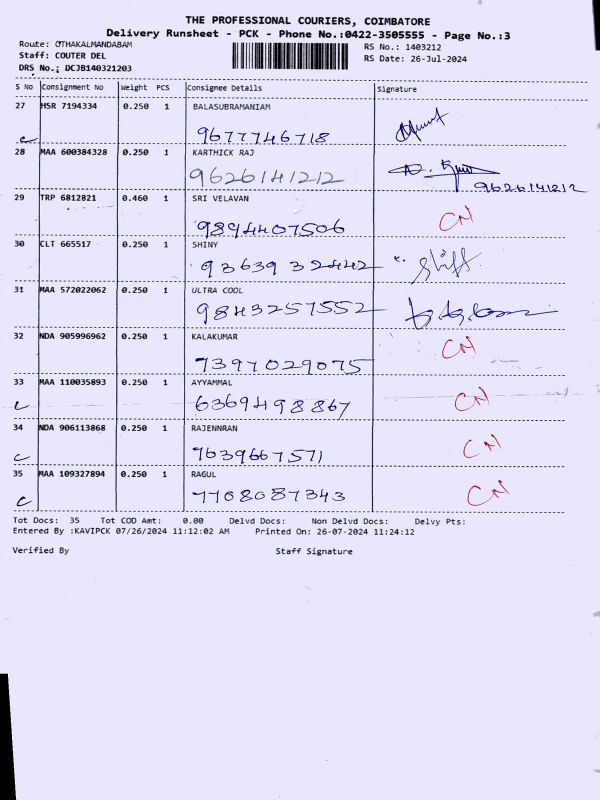 THE PROFESSIONAL COURIERS, COIMBATORE
Delivery Runsheet - PCK - Phone No.:0422-3505555 - Page No.:3
Route: OTHAKALMANDABAM
Staff: COUTER DEL
DRS No.: DCJB140321203
RS No.: 1403212
RS Date: 26-Jul-2024
S No Consignment No Weight PCS Consignee Details Signature
27 HSR 7194334 0.250 1 BALASUBRAMANIAM
c 9677746718
28 MAA 600384328 0.250 1 KARTHICK RAJ
9626141212 9626141212
29 TRP 6812821 0.460 1 SRI VELAVAN
9894407506 CN
30 CLT 665517 0.250 1 SHINY
93639 32442
31 MAA 572022062 0.250 1 ULTRA COOL
9843257552
32 NDA 905996962 0.250 1 KALAKUMAR
7397029075 CN
33 MAA 110035893 0.250 1 AYYAMMAL
c 6369498867 CN
34 NDA 906113868 0.250 1 RAJENNRAN
c 7639667571 CN
35 MAA 109327894 0.250 1 RAGUL
c 7708087343 CN
Tot Docs: 35 Tot COD Amt: 0.00 Delvd Docs: Non Delvd Docs: Delvy Pts:
Entered By :KAVIPCK 07/26/2024 11:12:02 AM Printed On: 26-07-2024 11:24:12
Verified By Staff Signature